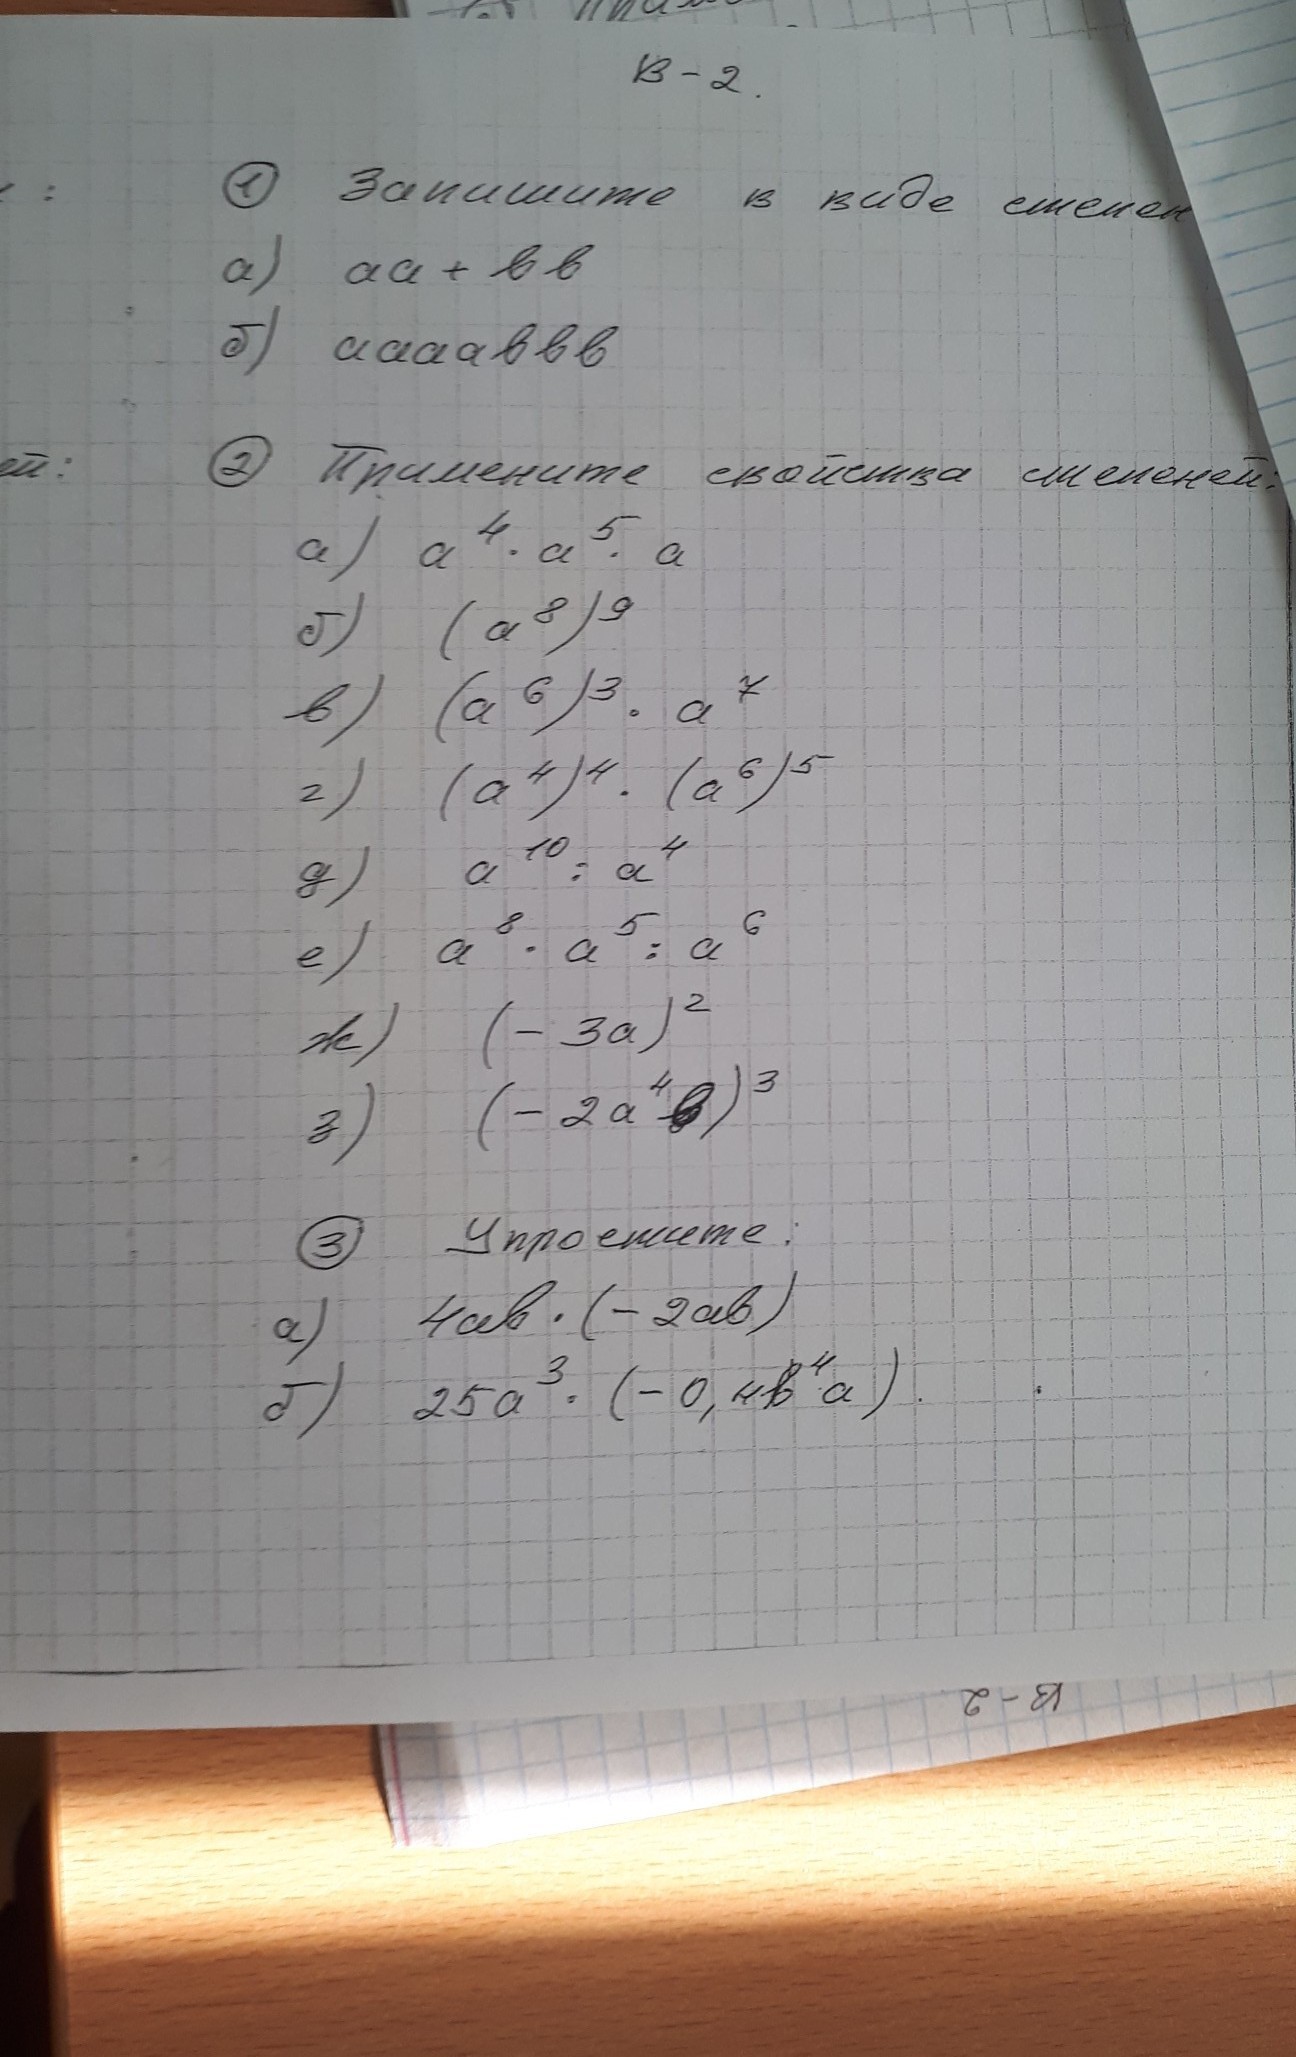 В-2.
① Запишите в виде степен
а) аа + вв
б) ааааввв
ей:
② Примените свойства степеней:
а) a⁴ · a⁵ · a
б) (a⁸)⁹
в) (a⁶)³ · a⁷
г) (a⁴)⁴ · (a⁶)⁵
д) a¹⁰ : a⁴
е) a⁸ · a⁵ : a⁶
ж) (- 3a)²
з) (- 2a⁴в)³
③ Упростите:
а) 4ав · (- 2ав)
б) 25a³ · (- 0,4в⁴a).
В-2